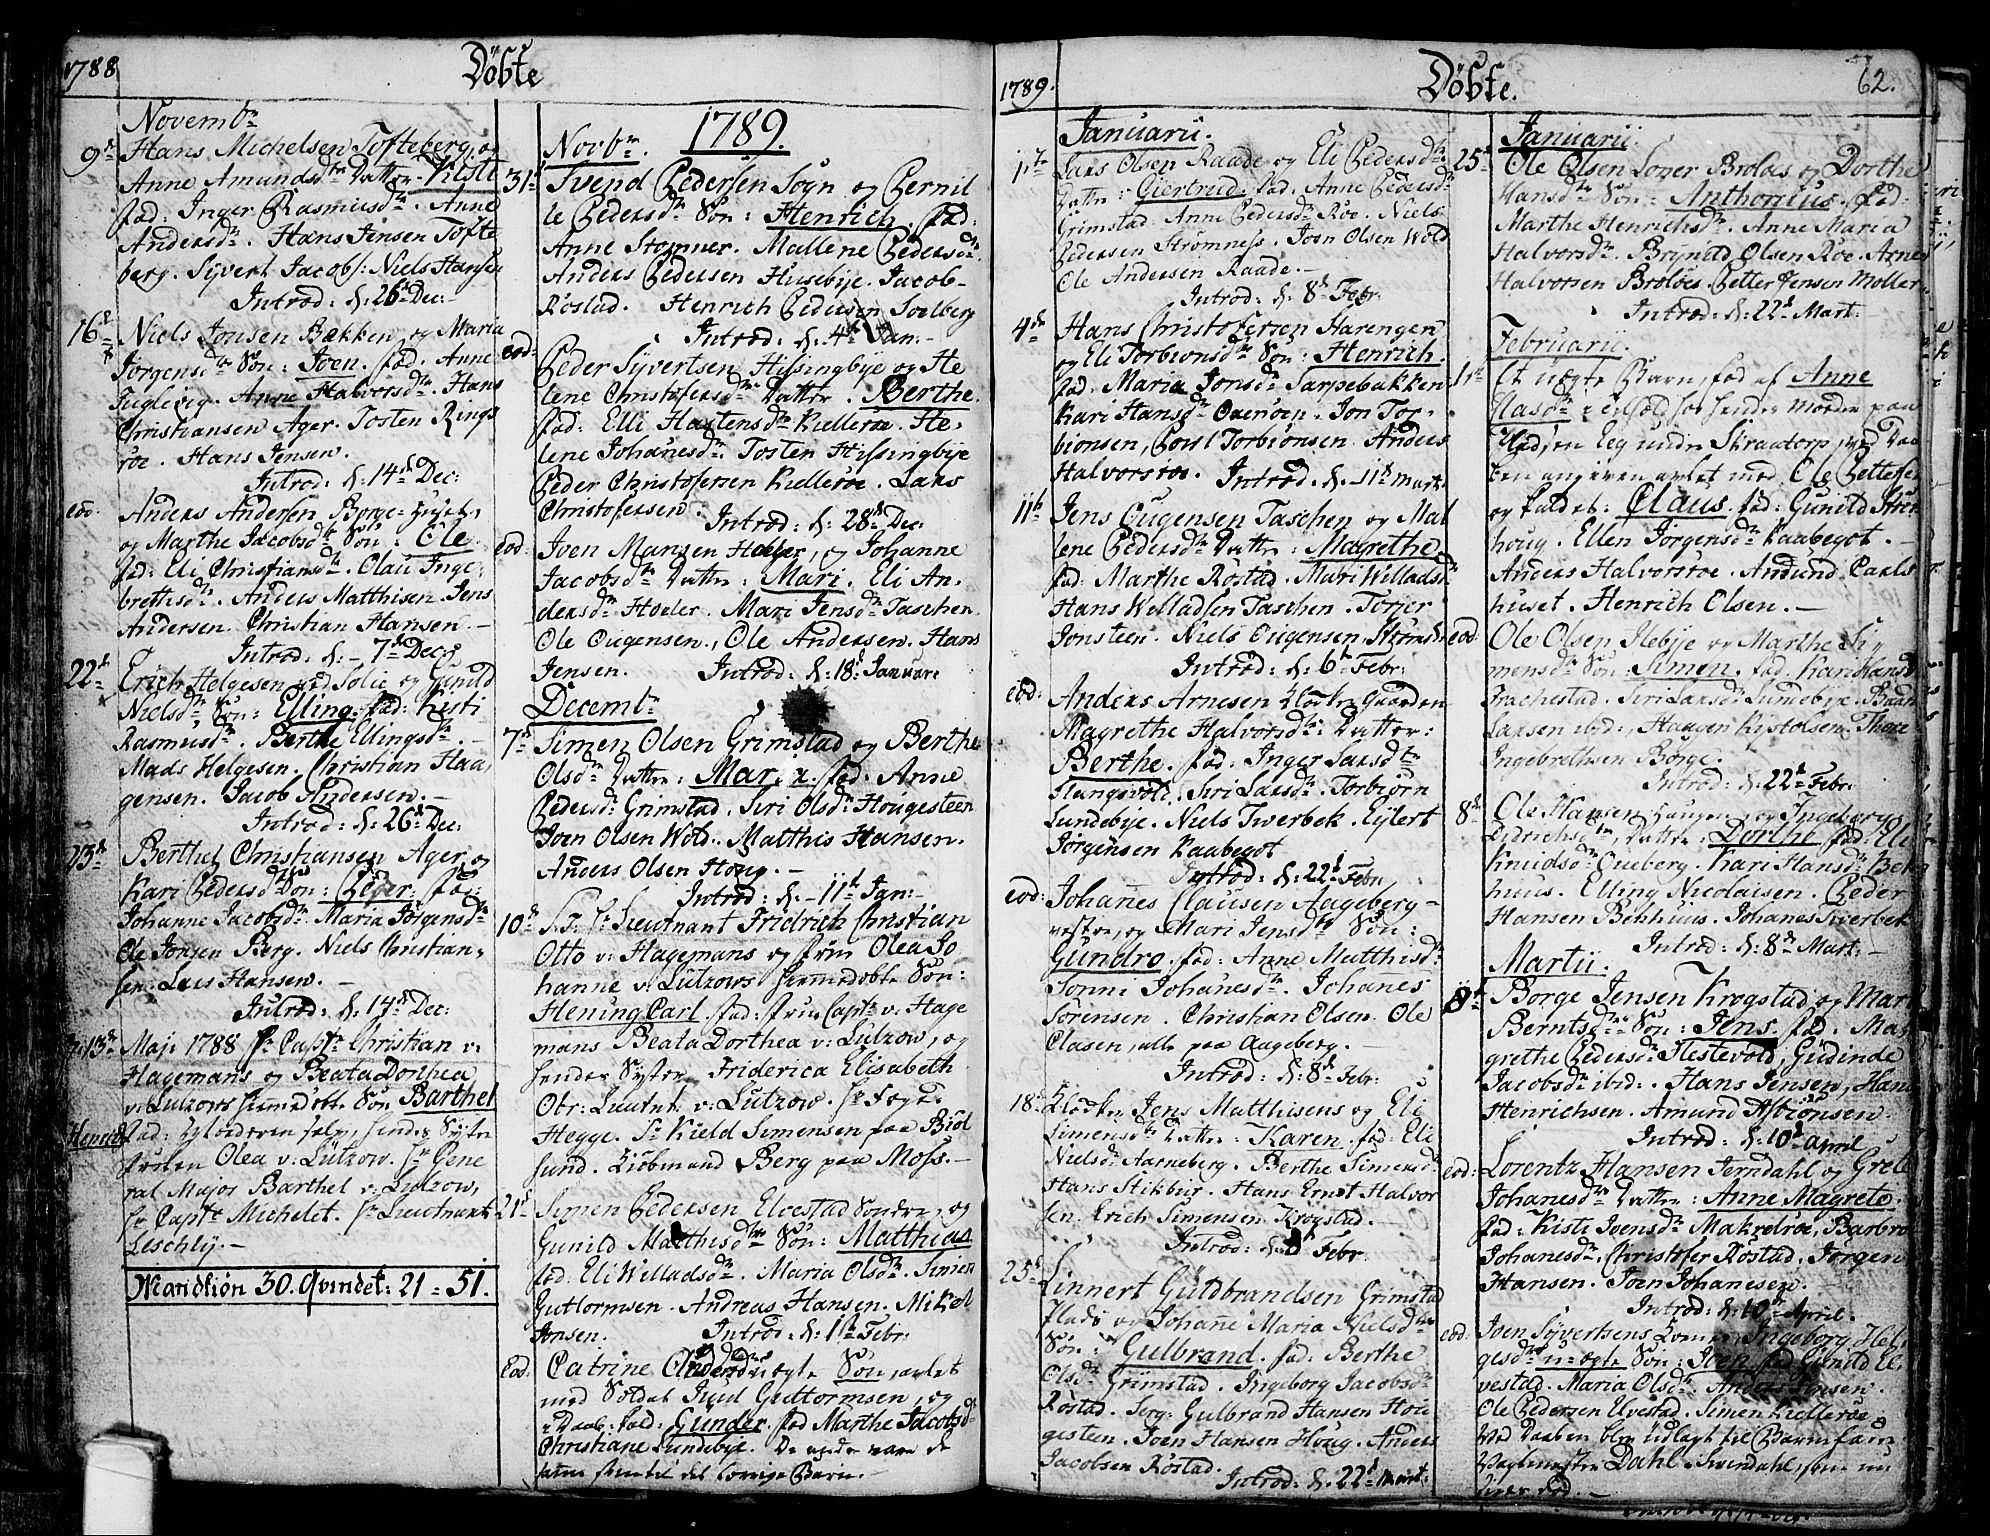 1788
Döbte
Novembr
9de Hans Michelsen Tofteberg og
Anne Amundsdtr Datter Kisti
fad: Inger Rasmusdtr. Anne
Andersdtr. Hans Jensen Tofte
berg. Syvert Jacobs: Niels Hansen
Introd: d: 26de Dec:
16de Niels Jonsen Bækken og Maria
Jörgensdtr Sön: Joen. fad. Anne
Fuglevig. Anne Halvorsdtr. Hans
Christiansen Ager. Tosten Rings
röe. Hans Jensen.
Introd: d: 14de Dec:
eod. Anders Andersen Borge
og Marthe Jacobsdtr Sön: Ole
fad: Eli Christiansdtr. Olau Inge-
brethsdtr. Anders Matthisen. Jens
Andersen. Christian Hansen.
Introd: d: 7de Dec:
22de Erich Helgesen Solie og Gunild
Nielsdtr Sön: Elling. fad: Kisti
Rasmusdtr. Berthe Ellingsdtr.
Mads Helgesen. Christian Haa-
gensen. Jacob Andersen.
Introd: d: 26de Dec:
23de Berthel Christiansen Ager og
Kari Pedersdtr Sön: Peder. fad:
Johanne Jacobsdtr. Maria Jörgensdtr
Ole Jonsen Berg. Niels Christian-
sen. Lars Hansen.
Introd: d: 14de Dec:
d: 13de Maji 1788 Hr Capt: Christian v:
Hagemans og Beata Dorthea
v: Lützows hiemmedöbte Sön Barthel
Henrich
fad: Moderen selv, hendes Syster
Fröken Olea v: Lützow. Hr Gene
ral Major Barthel v: Lützow,
Hr Capt: Michelet. Hr Lieutnant
Leschly.
Mandkiön 30. Qvindek: 21 = 51.
Novbr. 1789.
31te Svend Pedersen Sogn og Pernil
le Pedersdtr Sön: Henrich. fad:
Anne Stomner. Mallene Pedersdtr.
Anders Pedersen Husebye. Jacob
Röstad. Henrich Pedersen Soelberg
Introd: d: 4de Jan:
eod: Peder Syvertsen Hissingbye og He
lene Christofersdtr Datter. Berthe.
fad: Elli Hartensdtr Kielleröe. He-
lene Johanesdtr. Tosten Hissingbye
Peder Christofersen Kielleröe. Lars
Christofersen. Introd: d: 28de Dec:
eod. Joen Mansen Hoeler, og Johanne
Jacobsdtr Datter: Mari. Eli An-
dersdtr Hoeler. Mari Jensdtr Taschen
Ole Ougensen, Ole Andersen. Hans
Jensen. Introd: d: 18: Januar:
Decembr
7de Simen Olsen Grimstad og Berthe
Olsdtr Datter: Maria. fad: Anne
Pedersdtr Grimstad. Siri Olsdtr Hougesteen
Joen Olsen Wold. Matthis Hansen.
Anders Olsen Houg.
Introd: d: 11te Jan:
10de Hr Lieutnant Fridrich Christian
Otto v: Hagemans og Frue Olea Jo
hanne v: Lützows hiemmedöbte Sön:
Hening Carl. fad: Frue Capt: v: Hage
mans Beata Dorthea v: Lützow, og
hendes Syster Friderica Elisabeth
Obr: Lieutnt v: Lützow. Hr Foged
Hegge. Sr Kield Simensen paa Biöl
sund. Kiöbmand Berg paa Moss.
21de Simen Pedersen Elvestad Söndre, og
Gunild Matthisdtr Sön: Matthias
fad: Eli Willadsdtr. Maria Olsdtr. Simen
Guttormsen. Andreas Hansen. Mikel
Jonsen. Introd: d: 1te Febr:
Eod: Catrine Andersdtr uægte Sön, avlet
med Soldat Juul Guttormsen, og
i Daab: kald: Gunder. fad Marthe Jacobsdtr
Christiane Lundebye. De andre vare de
samme som til det forrige Barn.
1789.
Döbte.
62.
Januarii.
1te Lars Olsen Raade og Eli Pedersdtr
Datter: Giertrud. fad: Anne Pedersdtr
Grimstad. Anne Pedersdtr Röe. Niels
Pedersen Strömness. Joen Olsen Wold
Ole Andersen Raade.
Introd: d: 8de Febr.
4de Hans Christofersen Harengen
og Eli Torbionsdtr Sön: Henrich.
fad: Maria Jonsdtr Sarpebakken
Kari Hansdtr Overöen. Jon Tor-
bionsen, Povl Torbiönsen. Anders
Halvorsröe. Introd: d: 11te Mart:
11te Jens Ougensen Taschen og Mal
lene Pedersdtr Datter: Magrethe
fad: Marthe Röstad. Mari Willadsdtr
Hans Willadsen Taschen. Torjer
Jonsteen. Niels Ougensen Strömsd:
Introd: d: 6te Febr:
eod: Anders Arnesen Klocker Gaarden
Magrethe Halvorsdtr Datter:
Berthe. fad: Inger Larsdtr
Slangsvold. Siri Larsdtr. Torbiörn
Lundebye. Niels Twerbek. Eylert
Jörgensen Kaabegot
Introd: d: 22de Febr
eod: Johanes Clausen Aageberg
vestre, og Mari Jensdtr Sön:
Gundro. fad: Anne Matthisdtr
Sönni Johanesdtr. Johanes
Sörensen. Christian Olsen. Ole
Clasen, alle paa Aageberg.
Introd: d: 8de Febr:
18de Klocker Jens Matthisens og Eli
Simensdtr Datter: Karen. fad: Eli
Nielsdtr Aarneberg. Berthe Simensdtr
Hans Stikbur. Hans Ernst Halvor
sen. Erich Simensen Krogstad.
Introd: d: 8de Febr.
25de Linnert Guldbrandsen Grimstad
Plads og Johane Maria Nielsdtr
Sön: Gulbrand. fad: Berthe
Olsdtr Grimstad. Ingeborg Jacobsdtr
Röstad. Serg: Gulbrand Hansen Hou
gesteen. Joen Hansen Houg. Anders
Jacobsen Röstad.
Introd: d: 22de Mart:
Januarii.
25de Ole Olsen Loner Broløes og Dorthe
Hansdtr Sön: Anthonius. fad:
Marthe Henrichsdtr. Anne Maria
Halvorsdtr. Brynild Olsen Röe. Arne
Halvorsen Brolöes. Petter Jensen Moller
Introd: d: 22de Mart:
Februarii.
1te Et uægte Barn, fød af Anne
Olasdtr i hendes Moder paa
Plads en Eeg under Skraatorp, ved Daa
ben angiven avlet med Ole Pettersen
og kaldet: Claus. fad: Gunild Steen
houg. Ellen Jörgensdtr Kaabegot.
Anders Halvorsröe. Amund Carls
huset. Henrich Olsen.
eod: Ole Olsen Ilebye og Marthe Si
mensdtr Sön: Simen. fad: Kari Hansdtr
Frachestad. Siri Larsdtr Lundebye. Baard
Larsen ibid: Haagen Kistolsen. Thore
Ingebrethsen Borge.
Introd: d: 22de Febr.
8de Ole Hansen Haugen og Ingeborg
Didrichsdtr, Datter: Dorthe fad: Eli
Knudsdtr Oueberg. Kari Hansdtr Bek
huus. Elling Nicolaisen. Peder
Hansen Bekhuus. Johanes Twerbek
Introd: d: 8de Mart:
Martii.
8de Borge Jensen Krogstad og Mari
Berntsdtr Sön: Jens. fad: Mag
grethe Pedersdtr Hestevold, Gudinde
Jacobsdtr ibid: Hans Jensen, Hans
Henrichsen. Amund Asbiönsen
Introd: d: 10de April
eod: Lorentz Hansen Jerndahl og Grete
Johanesdtr Datter: Anne Magrete.
fad: Kisti Ivensdtr Makrelröe, Barbro
Johanesdtr. Christofer Röstad. Jörgen
Hansen. Joen Johanesen.
Introd: d: 10de April.
eod: Joen Syvertsens og Ingeborg Hel-
gesdtr u-ægte Sön: Joen. fad Gunild El-
vestad. Maria Olsdtr. Anders Jensen.
Ole Pedersen Elvestad. Simen Kielleröe.
Ved Daaben blev udlagt til Barnefader
Vagtmester Dahl i Svendahl, som nu
er död.